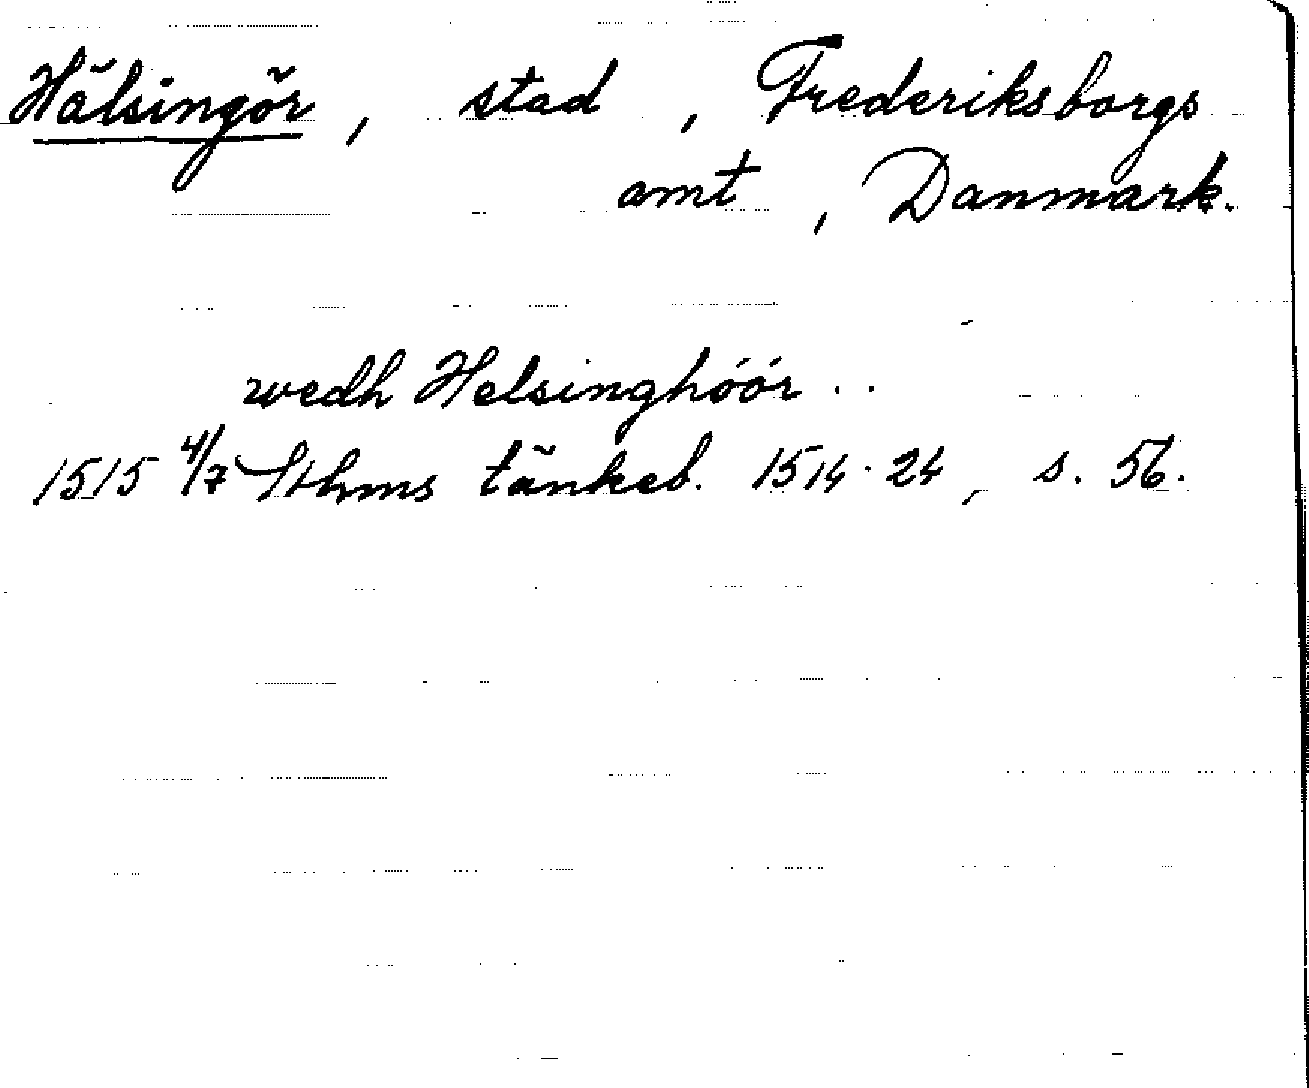 Hälsingör, stad, Frederiksborgs
amt, Danmark.
wedh Helsinghóór . .
1515 4/7 Sthms tänkeb. 1514-24, s. 56.